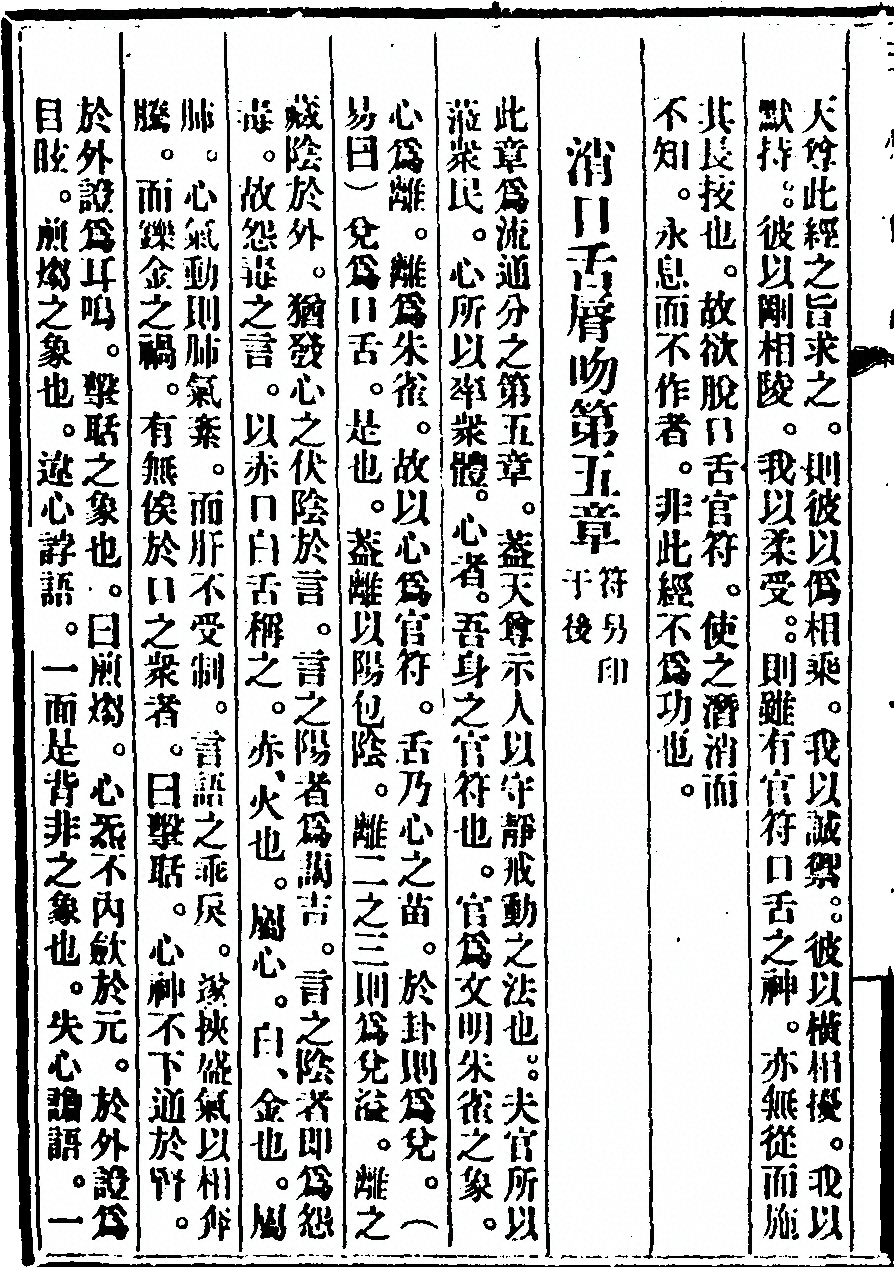 天尊此經之旨求之。則彼以僞相乘。我以誠禦。彼以橫相擾。我以
默持。彼以剛相陵。我以柔受。則雖有官符口舌之神。亦無從而施
其長技也。故欲脫口舌官符。使之潛消而
不知。永息而不作者。非此經不爲功也。
消口舌脣吻第五章
符另印
于後
此章爲流通分之第五章。葢天尊示人以守靜戒動之法也。夫官所以
蒞眾民。心所以率眾體。心者。吾身之官符也。官爲文明朱雀之象。
心爲離。離爲朱雀。故以心爲官符。舌乃心之苗。於卦則爲兌。（
易曰）兌爲口舌。是也。葢離以陽包陰。離二之三則爲兌溢。離之
藏陰於外。猶發心之伏陰於言。言之陽者爲藹吉。言之陰者即爲怨
毒。故怨毒之言。以赤口白舌稱之。赤、火也。屬心。白、金也。屬
肺。心氣動則肺氣柰。而肝不受制。言語之乖戾。遂挾盛氣以相奔
騰。而鑠金之禍。有無俟於口之眾者。曰擊聒。心神不下通於腎。
於外證爲耳鳴。擊聒之象也。曰煎煼。心炁不內斂於元。於外證爲
目眩。煎煼之象也。違心諄語。一面是背非之象也。失心譫語。一